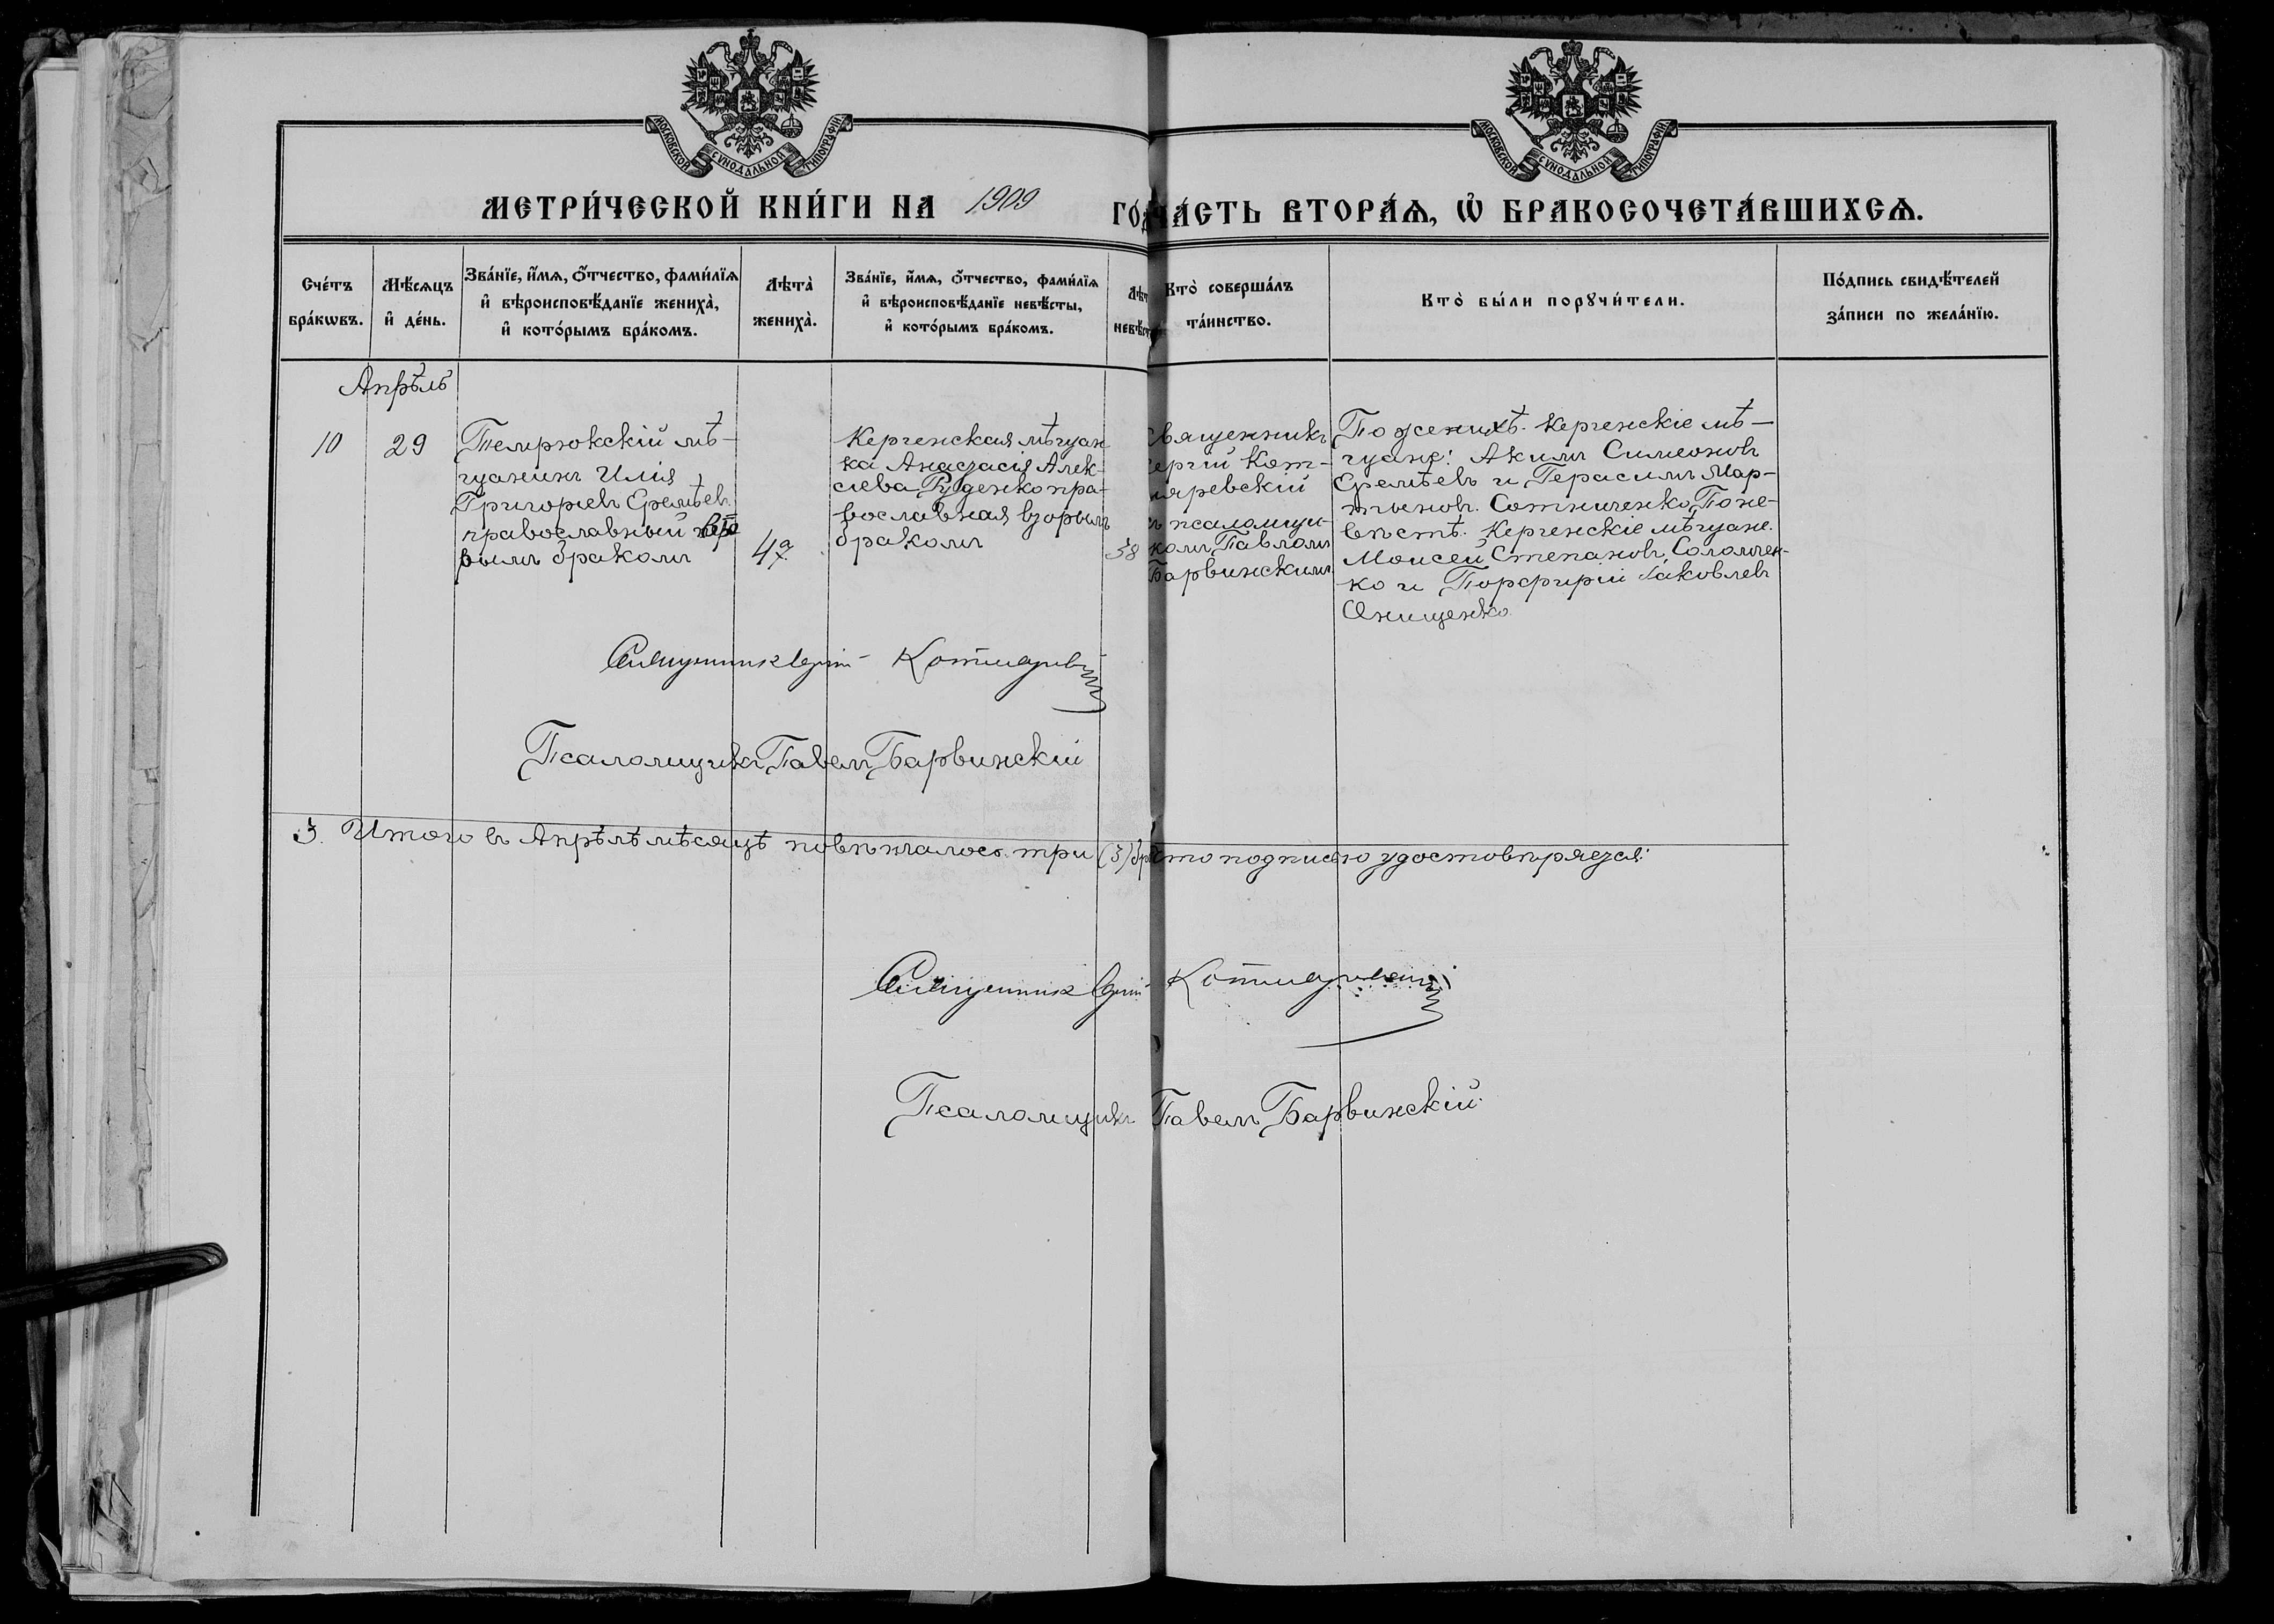 МОСКОВСКОЙ СѴНОДАЛЬНОЙ ТИПОГРАФІИ
МОСКОВСКОЙ СѴНОДАЛЬНОЙ ТИПОГРАФІИ
МЕТРИ́ЧЕСКОЙ КНИ́ГИ НА 1909 ГО́Д
ЧА́СТЬ ВТОРА́Ѧ, Ѡ҆ БРАКОСОЧЕТА́ВШИХСѦ.
Сче́тъ
бра́кѡвъ.
Мѣ́сѧцъ
и҆ де́нь.
Зва́нїе, и҆́мѧ, ѻ҆́тчество, фами́лїѧ
и҆ вѣроисповѣ́данїе жениха̀,
и҆ кото́рымъ бра́комъ.
Лѣта̀
жениха̀.
Зва́нїе, и҆́мѧ, ѻ҆́тчество, фами́лїѧ
и҆ вѣроисповѣ́данїе невѣ́сты,
и҆ кото́рымъ бра́комъ.
Лѣт
невѣ́с
Кто̀ соверша́лъ
та́инство.
Кто̀ бы́ли порꙋчи́тели.
По́дпись свидѣ́телей
за́писи по жела́нїю.
Апрѣль
10
29
Темрюкскій мѣ-
щанинъ Илія
Григорьевъ Еремѣевъ
православный вто
рымъ бракомъ
47
Керченская мѣщан
ка Анастасія Алек-
сіева Руденко пра-
вославная вторымъ
бракомъ
38
Священникъ
Сергій Кот-
ляревскій
съ псаломщи-
комъ Павломъ
Барвинскимъ
По женихѣ. Керченскіе мѣ-
щане: Акимъ Симеоновъ
Еремѣевъ и Герасимъ Мар-
тыновъ Сотниченко, По не-
вѣстѣ. Керченскіе мѣщане.
Моисей Степановъ Соломчен-
ко и Порфирій Іаковлевъ
Онищенко
Священникъ Сергій Котляревскій
Псаломщикъ Павелъ Барвинскій
3. Итого въ Апрѣлѣ мѣсяцѣ повѣнчалось три (3) бра что подписью удостовѣряется:
Священникъ Сергій Котляревскій
Псаломщикъ Павелъ Барвинскій.